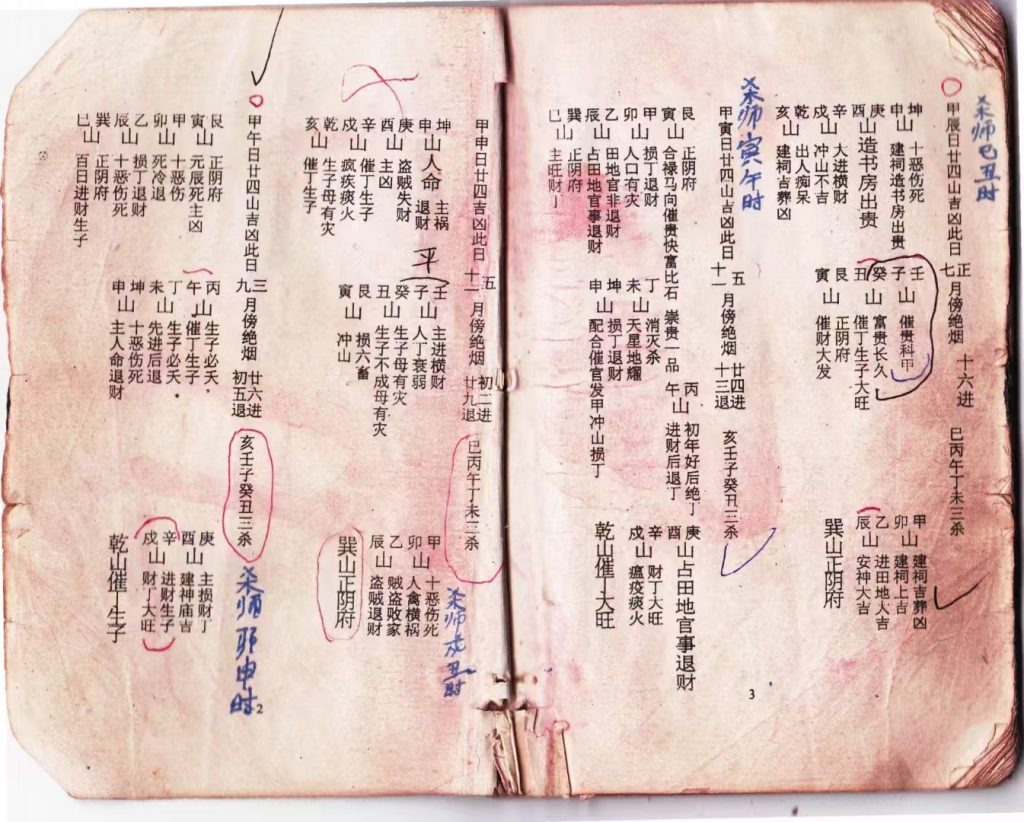 甲申日廿四吉凶此日 五十一月傍绝烟 初二进 廿九退 巳丙午丁未三杀
坤申山人命 主祸 退财
庚 盗贼失财
酉山 主凶
辛 催丁生子
戌山 疯疾痰火
乾 生子母有灾
亥山 催丁生子
平
壬 主进横财
子山 人丁衰弱
癸 生子母有灾
丑山 生子不成母有灾
艮 损六畜
寅山 冲山
甲 十恶伤死
卯山 人禽横祸
乙 贼盗败家
辰山 盗贼退财
巽山正阴府
杀师戌丑时
甲午日廿四山吉凶此日 三九月傍绝烟 廿六进 初五退 亥壬子癸丑三杀
艮 正阴府
寅山 元辰死主凶
甲 十恶伤
卯山 死冷退
乙 损丁退财
辰山 十恶伤死
巽 正阴府
巳山 百日进财生子
丙 生子必夭
午山 催丁生子
丁 生子必夭
未山 先进后退
坤 十恶伤死
申山 主人命退财
庚 主损财丁
酉山 建神庙吉
辛 进财生子
戌山 财丁大旺
乾山催丁生子
杀师卯申时
2
杀师巳丑时
甲辰日廿四山吉凶此日 正七月傍绝烟 十六进 巳丙午丁未三杀
坤 十恶伤死
申山 建祠造书房出贵
庚
酉山造书房出贵
辛 大进横财
戌山 冲山不吉
乾 出人痴呆
亥山 建祠吉葬凶
壬
子山 催贵科甲
癸 富贵长久
丑山 催丁生子大旺
艮 正阴府
寅山 催财大发
甲 建祠吉葬凶
卯山 建祠上吉
乙 进田地人吉
辰山 安神大吉
巽山正阴府
杀师寅午时
甲寅日廿四山吉凶此日 五十一月傍绝烟 廿四进 十三退 亥壬子癸丑三杀
艮 正阴府
寅山 合禄马向催贵快富比石崇贵一品
甲 损丁退财
卯山 人口有灾
乙 田地官非退财
辰山 占田地官事退财
巽 正阴府
巳山 主旺财丁
丙 初年好后绝丁
午山 进财后退丁
丁 消灭杀
未山 天星地耀
坤 损丁退财
申山 配合催官发甲冲山损丁
庚
酉山占田地官事退财
辛 财丁大旺
戌山 瘟疫痰火
乾山催丁大旺
3